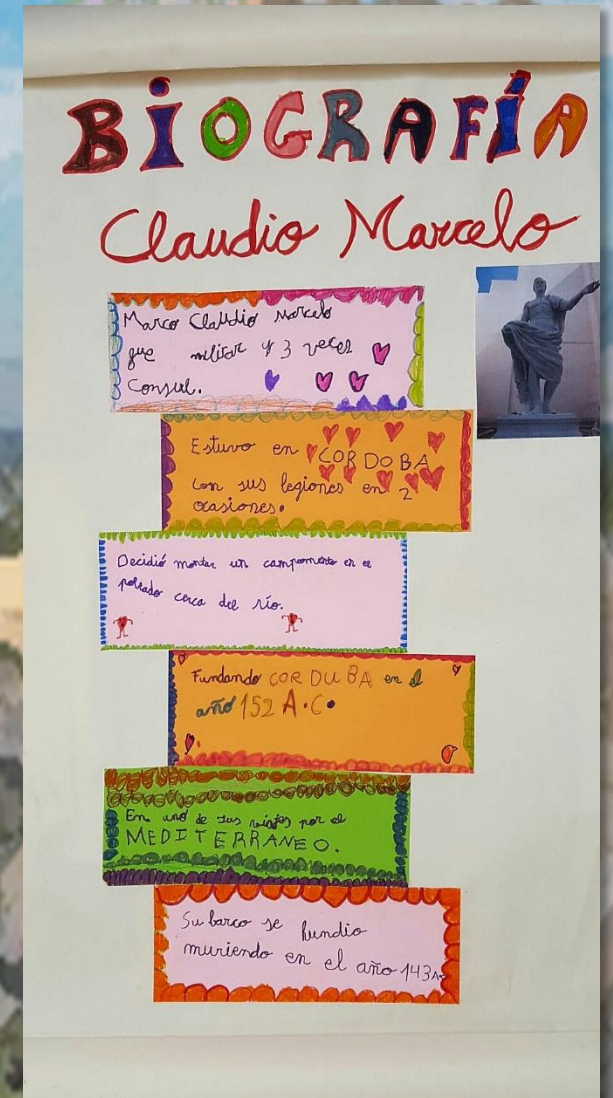 BIOGRAFÍA
Claudio Marcelo
Marco Claudio Marcelo
fue militar y 3 veces
Consul.
Estuvo en CORDOBA
con sus legiones en 2
ocasiones.
Decidió montar un campamento en el
poblado cerca del río.
Fundando CORDUBA en el
año 152 A.C.
En uno de sus viajes por el
MEDITERRANEO.
Su barco se hundio
muriendo en el año 143A